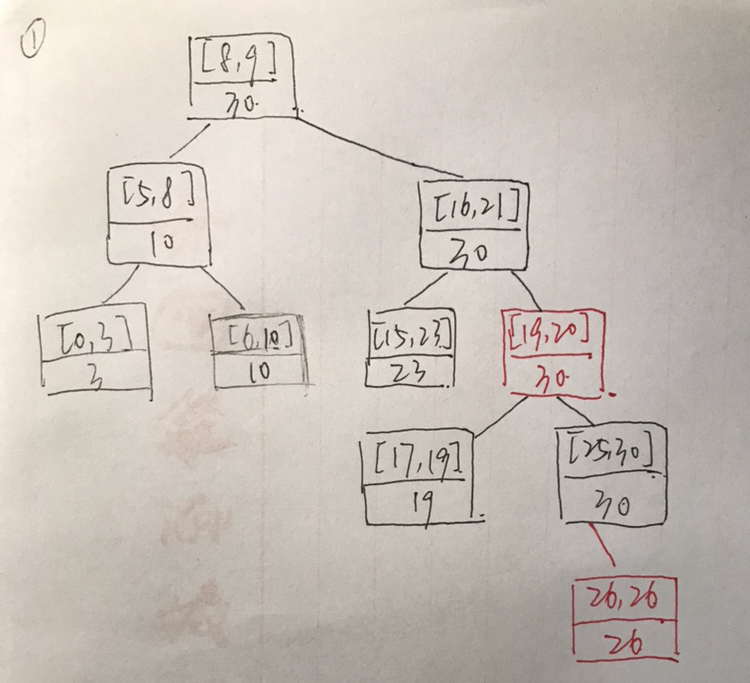 ①
[8,9]
30
[5,8]
10
[16,21]
30
[0,3]
3
[6,10]
10
[15,23]
23
[19,20]
30
[17,19]
19
[25,30]
30
26,26
26